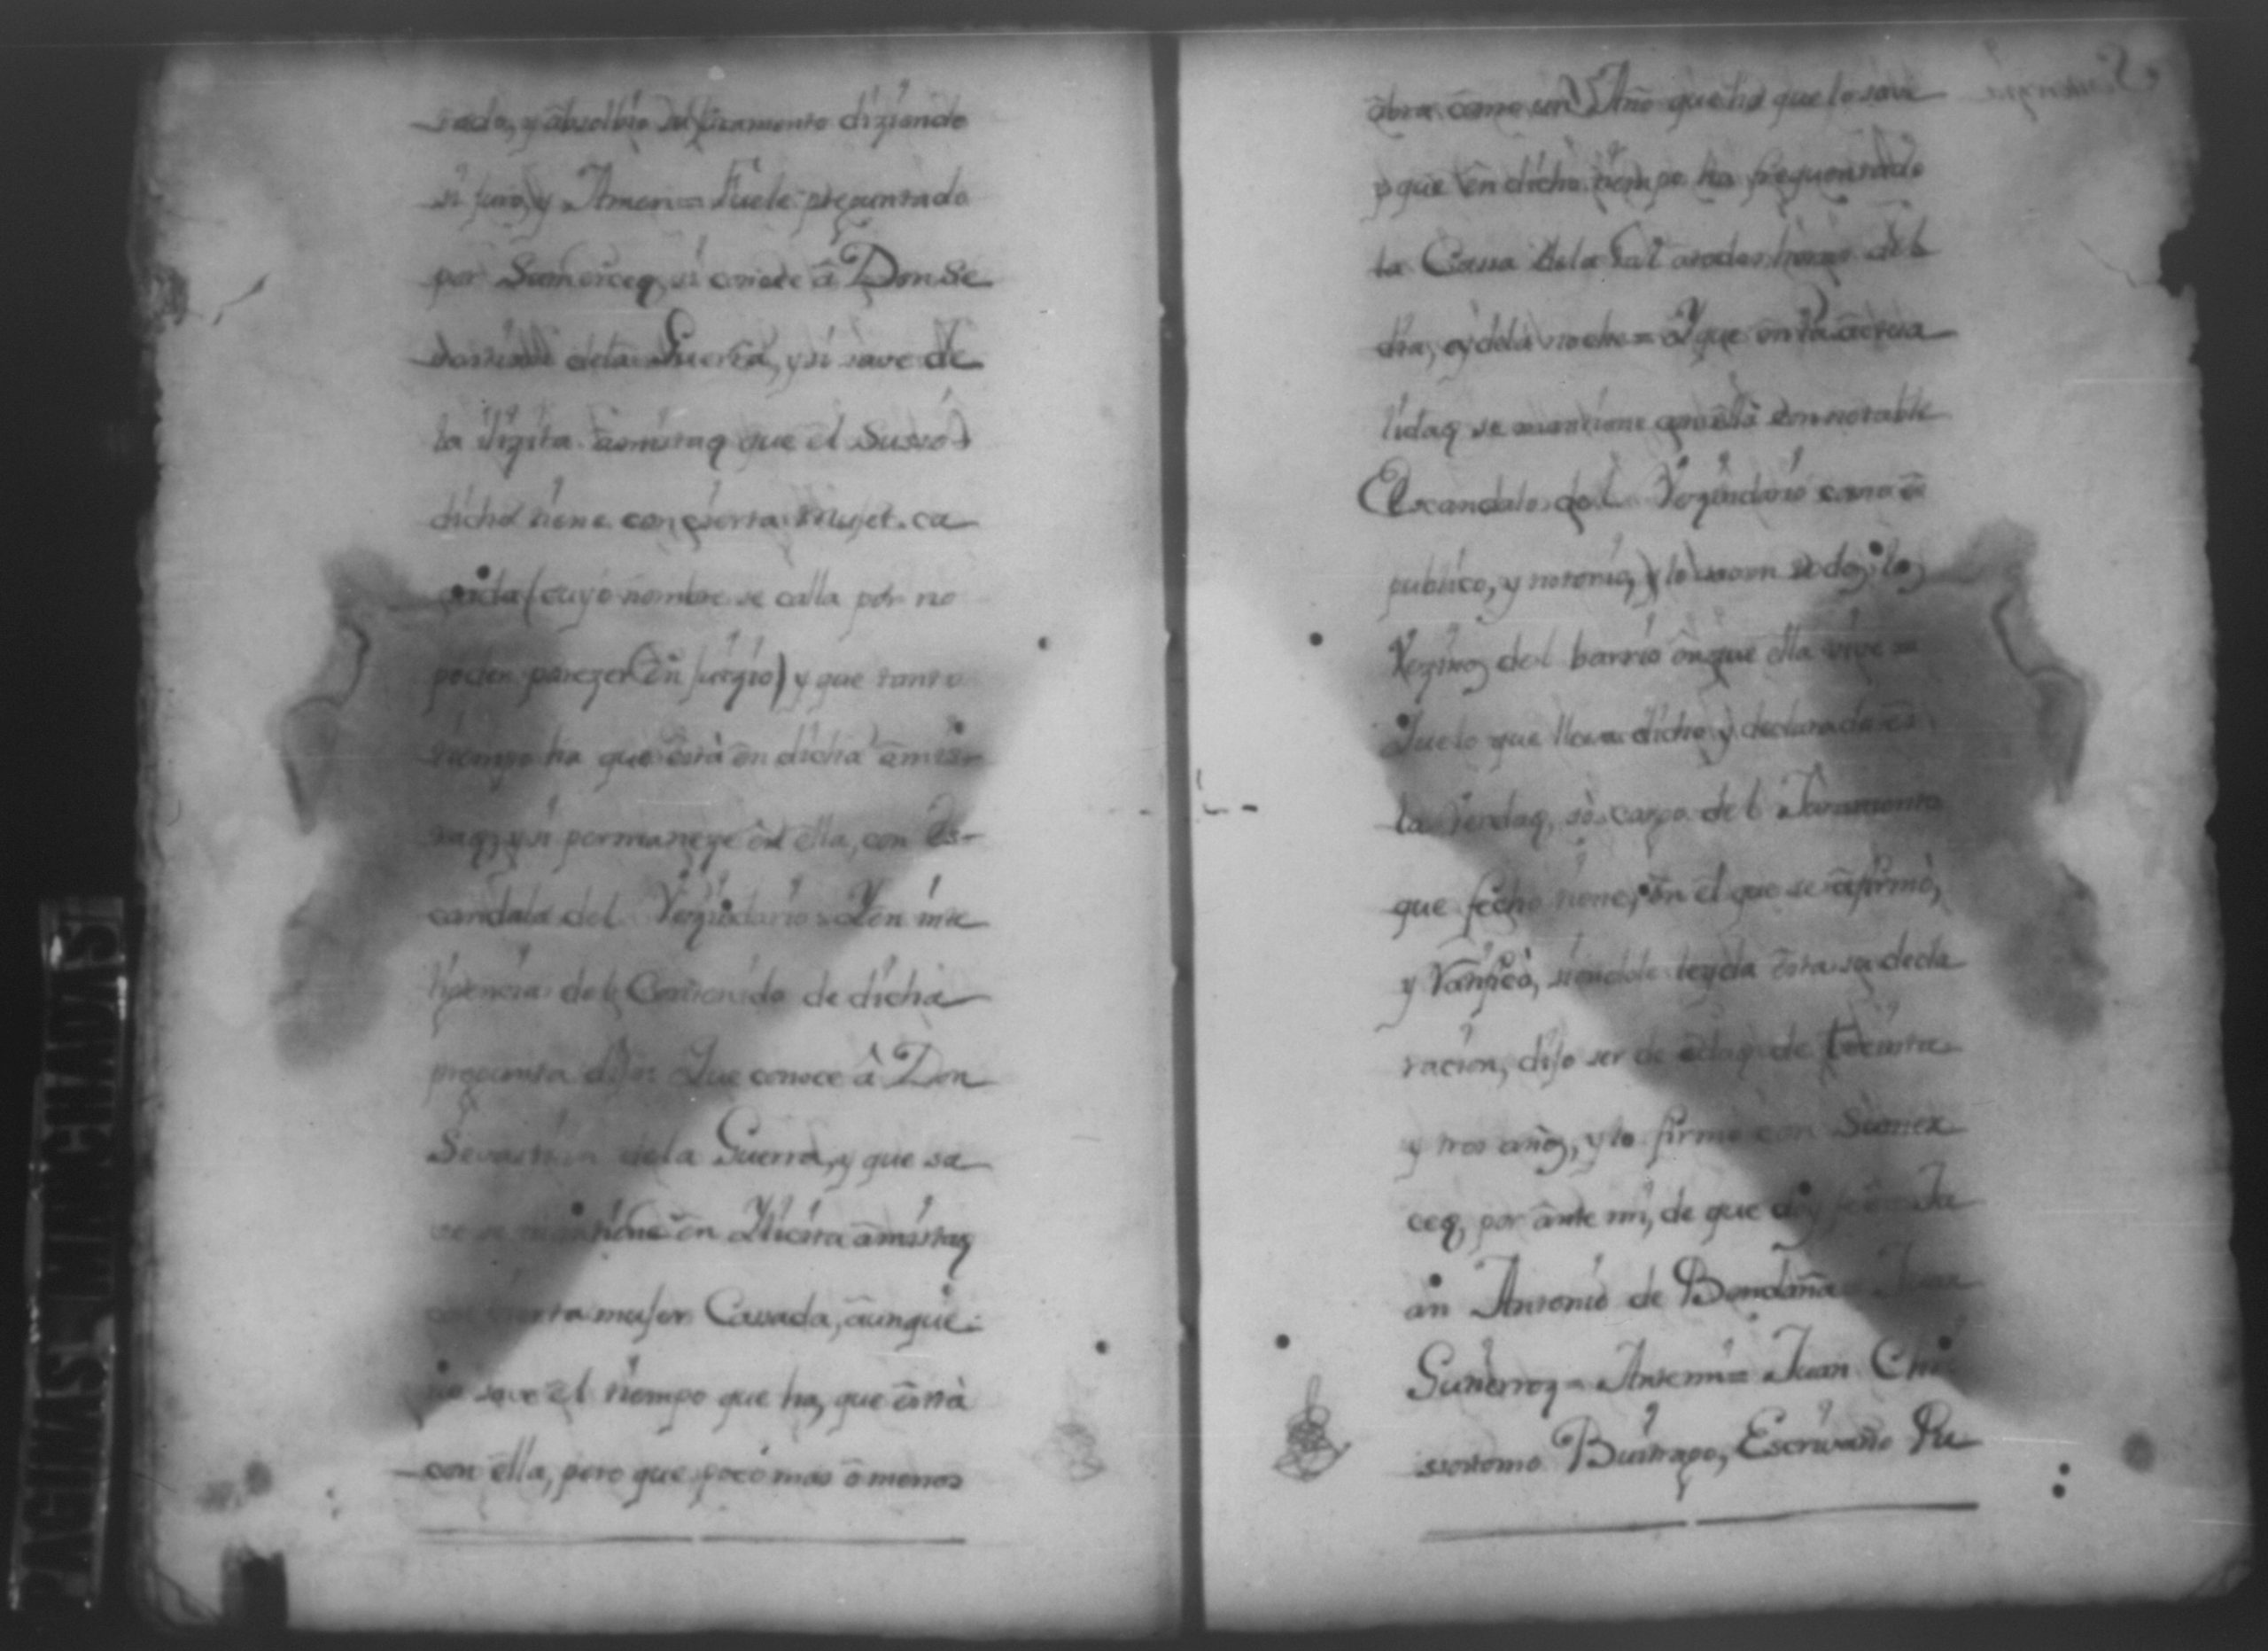 rado, y absolbio el Juramento diziendo
si juro, y Amen = Fuele preguntado
por Sumerceq, si conoce â Don Se
bastian dela Guerra, y si save de
la ilizita amistaq que el Suso
dicho tiene con çierta Mujer ca
sada (cuyo nombre se calla por no
poder parezer en juizio) y que tanto
tiempo ha que está en dicha amis
taq, y si permaneze en ella, con es-
candalo del Vezindario = Y en inte
ligencia del Contenido de dicha
pregunta dijo: Que conoce â Don
Sevastian dela Guerra, y que sa
ve se mantiene en Ylicita amistaq
con cierta mujer Casada, aunque
no save el tiempo que ha, que está
con ella, pero que poco mas o menos
abra como un Año que ha que lo save
y que en dicho tiempo ha frequentado
la Cassa dela tal a todas horas del
dia, y dela noche = Y que en la actua
lidaq se mantiene con ella con notable
Escandalo del Vezindario como es
publico, y notorio, y lo saven todos los
Vezinos del barrio en que ella vive =
Que lo que lleva dicho y declarado es
la verdaq, so cargo del Juramento
que fecho tiene, en el que se afirmó,
y ratificó, siendole leyda esta su decla
racion, dijo ser de edaq de treinta
y tres años, y lo firmó con Sumer
ceq, por ante mi, de que doy fee = Ju
an Antonio de Bendaña = Juan
Gutierrez = Antemi = Juan Chri
sostomo Buitrago, Escrivano Pu
PAGINAS MANCHADAS